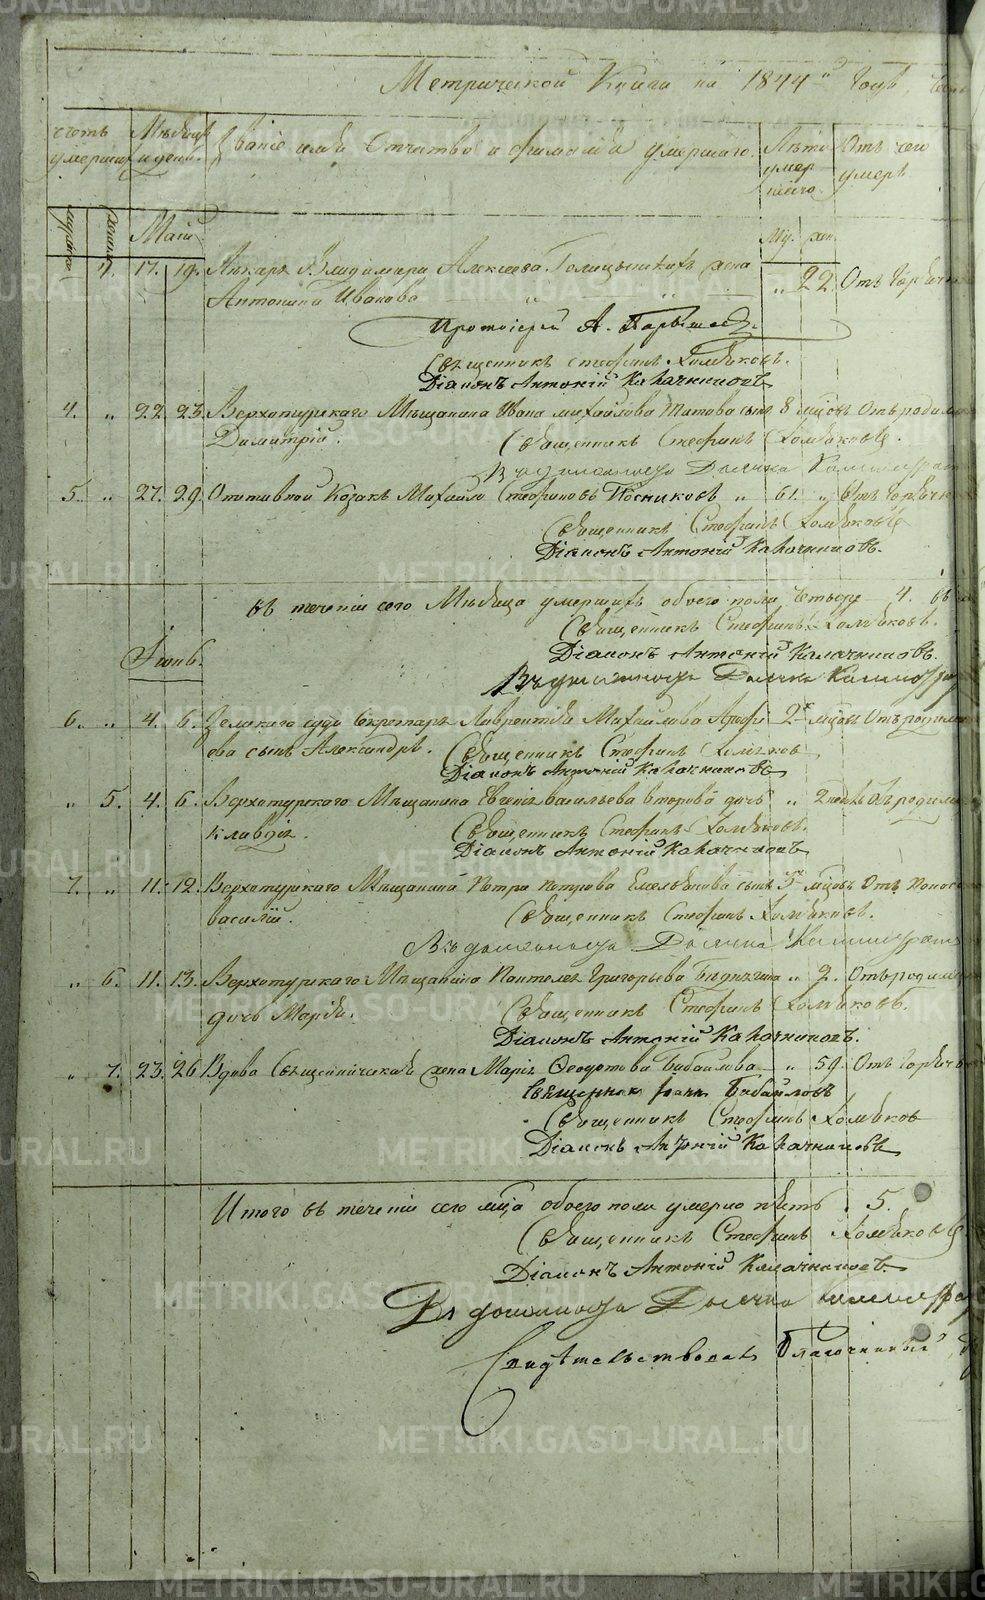 Метрической Книги на 1844й Годъ,
Счетъ умершихъ
Мѣсяцъ и день.
Званіе имя Отчество и фамилія умершаго.
Лѣта умершаго
Отъ чего умеръ
Май
Му. жен.
4. 17. 19. Лѣкаря Владимера Алексеева жена " 22 Отъ Горячки
Антонина Иванова
Протоіерей А.
Священникъ Стефанъ Хомяковъ.
Діаконъ Антоній Калачниковъ
4. " 22. 23. Верхотурскаго Мѣщанина Ивана Михайлова Титова сынъ 8 мцовъ Отъ родимца
Димитрій.
Священникъ Стефанъ Хомяковъ.
Въ должности Дьячка
5. " 27. 29. Отставной Козакъ Михайло Стефановъ Постниковъ " 61. " Отъ Горячки
Священникъ Стефанъ Хомяковъ
Діаконъ Антоній Калачниковъ.
въ теченіи сего Мѣсяца умершихъ обоего пола Четыре 4.
Священникъ Стефанъ Хомяковъ.
Діаконъ Антоній Калачниковъ.
Въ должности Дьячка
Іюнь.
6. " 4. 6. Земскаго суда Секретаря Лаврентія Михайлова 2х мцовъ Отъ родимца
ева сынъ Александръ. Священникъ Стефанъ Хомяков
Діаконъ Антоній Калачниковъ
" 5. 4. 6. Верхотурскаго Мѣщанина Евгенія Васильева Второва дочь " 2 Отъ родимца
Клавдія.
Священникъ Стефанъ Хомяковъ.
Діаконъ Антоній Калачниковъ
7. " 11. 12. Верхотурскаго Мѣщанина Петра Петрова Емельянова сынъ 5 мцовъ Отъ поноса
Василій.
Священникъ Стефанъ Хомяковъ.
Въ должности Дьячка
" 6. 11. 13. Верхотурскаго Мѣщанина Пантелея Григорьева " 2. Отъ родимца
дочь Марія.
Священникъ Стефанъ Хомяковъ.
Діаконъ Антоній Калачниковъ.
" 7. 23. 26 Вдова Священническая жена Марія Федотова Бибайлова " 59. Отъ Горячки
Священник Іоанн Бибайловъ
Священникъ Стефанъ Хомяков
Діаконъ Антоній Калачниковъ
Итого въ теченіи сего мца обоего пола умерло пять 5.
Священникъ Стефанъ Хомяковъ
Діаконъ Антоній Калачниковъ.
Въ должности Дьячка
Свидѣтельствовалъ Благочинный
METRIKI.GASO-URAL.RU